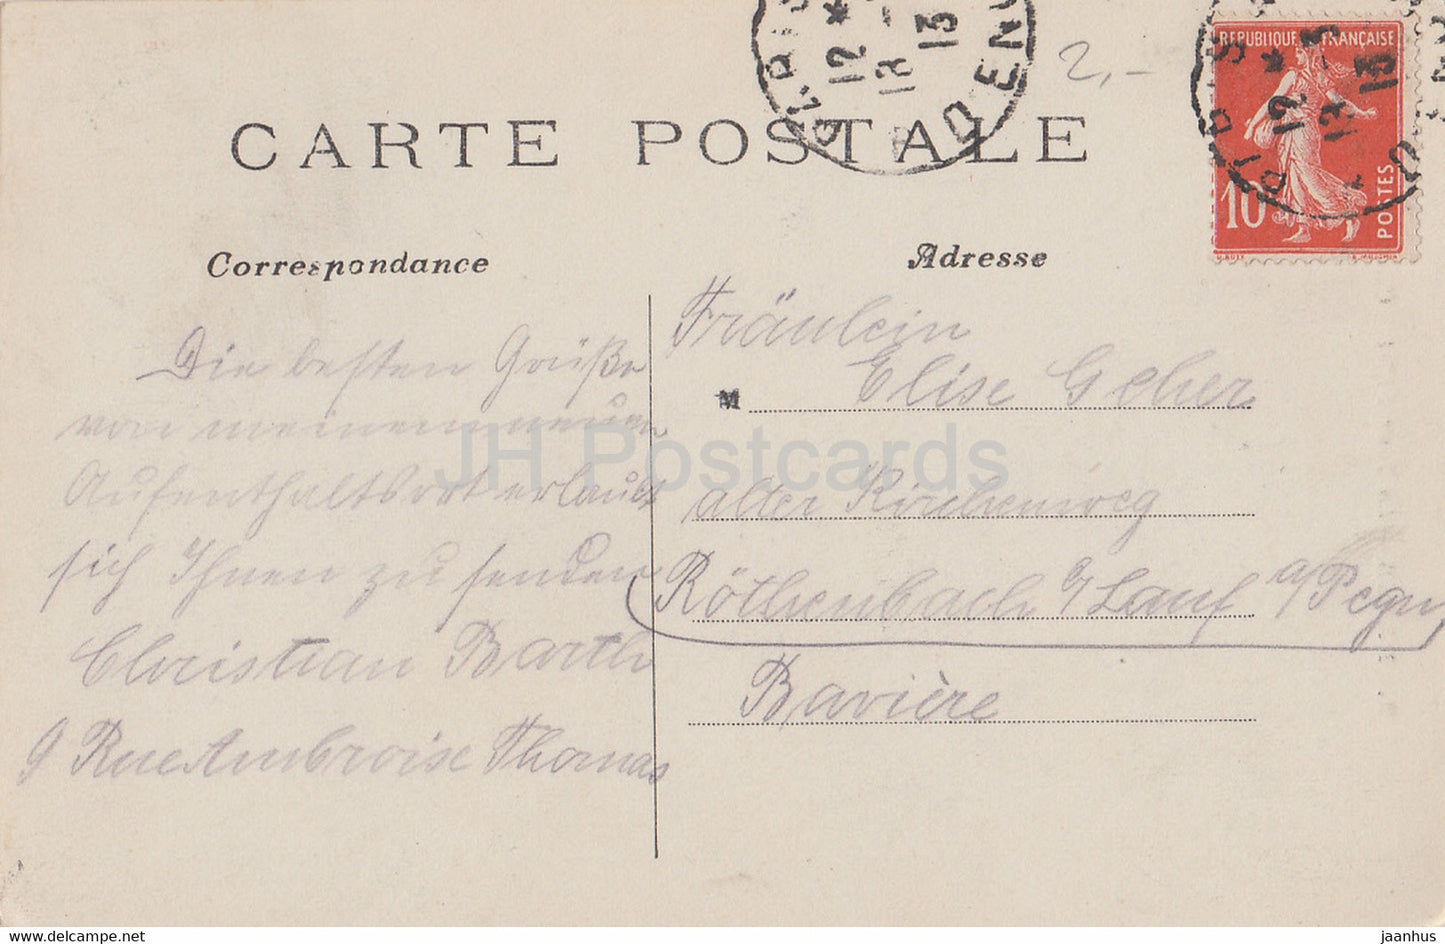 CARTE POSTALE
2,-
REPUBLIQUE FRANÇAISE
10
POSTES
Correspondance
Adresse
Die besten Grüße
von meinem neuen
Aufenthaltsort erlaubt
sich Ihnen zu senden
Christian Barth
9 Rue Ambroise Thomas
Fräulein
M Elise Gcher
alter Kirchenweg
Röthenbach b/ Lauf a/Pegn
Bavière
JH Postcards
www.delcampe.net
jaanhus